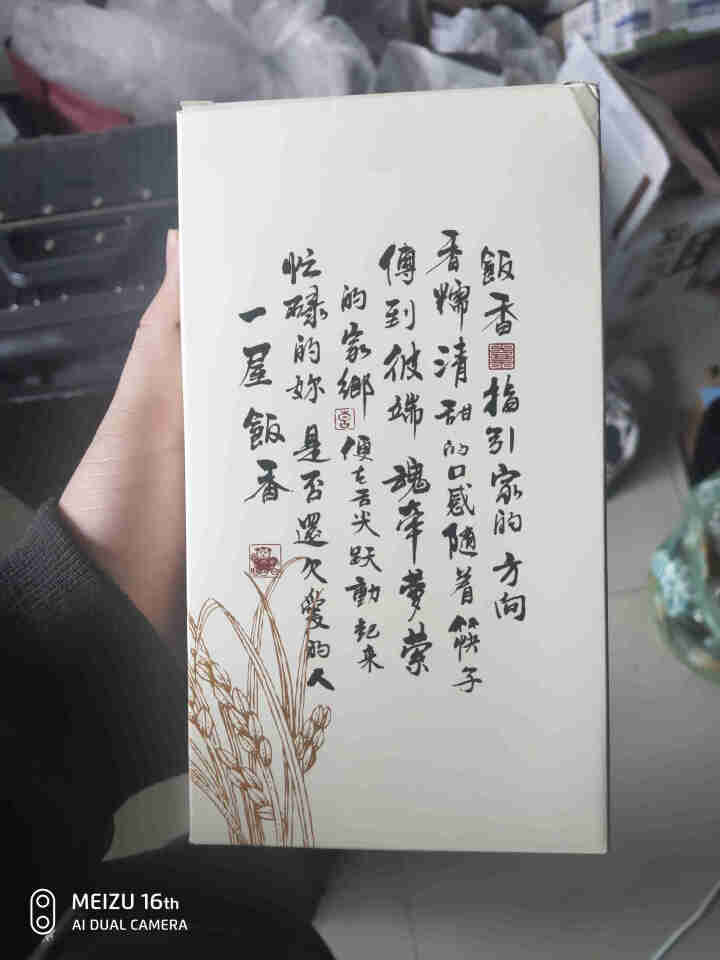 飯香 指引家的方向
香糯清甜的口感随着筷子
傳到彼端 魂牵夢萦
的家鄉 便在舌尖跃動起来
忙碌的妳 是否還欠愛的人
一屋飯香
MEIZU 16th
AI DUAL CAMERA